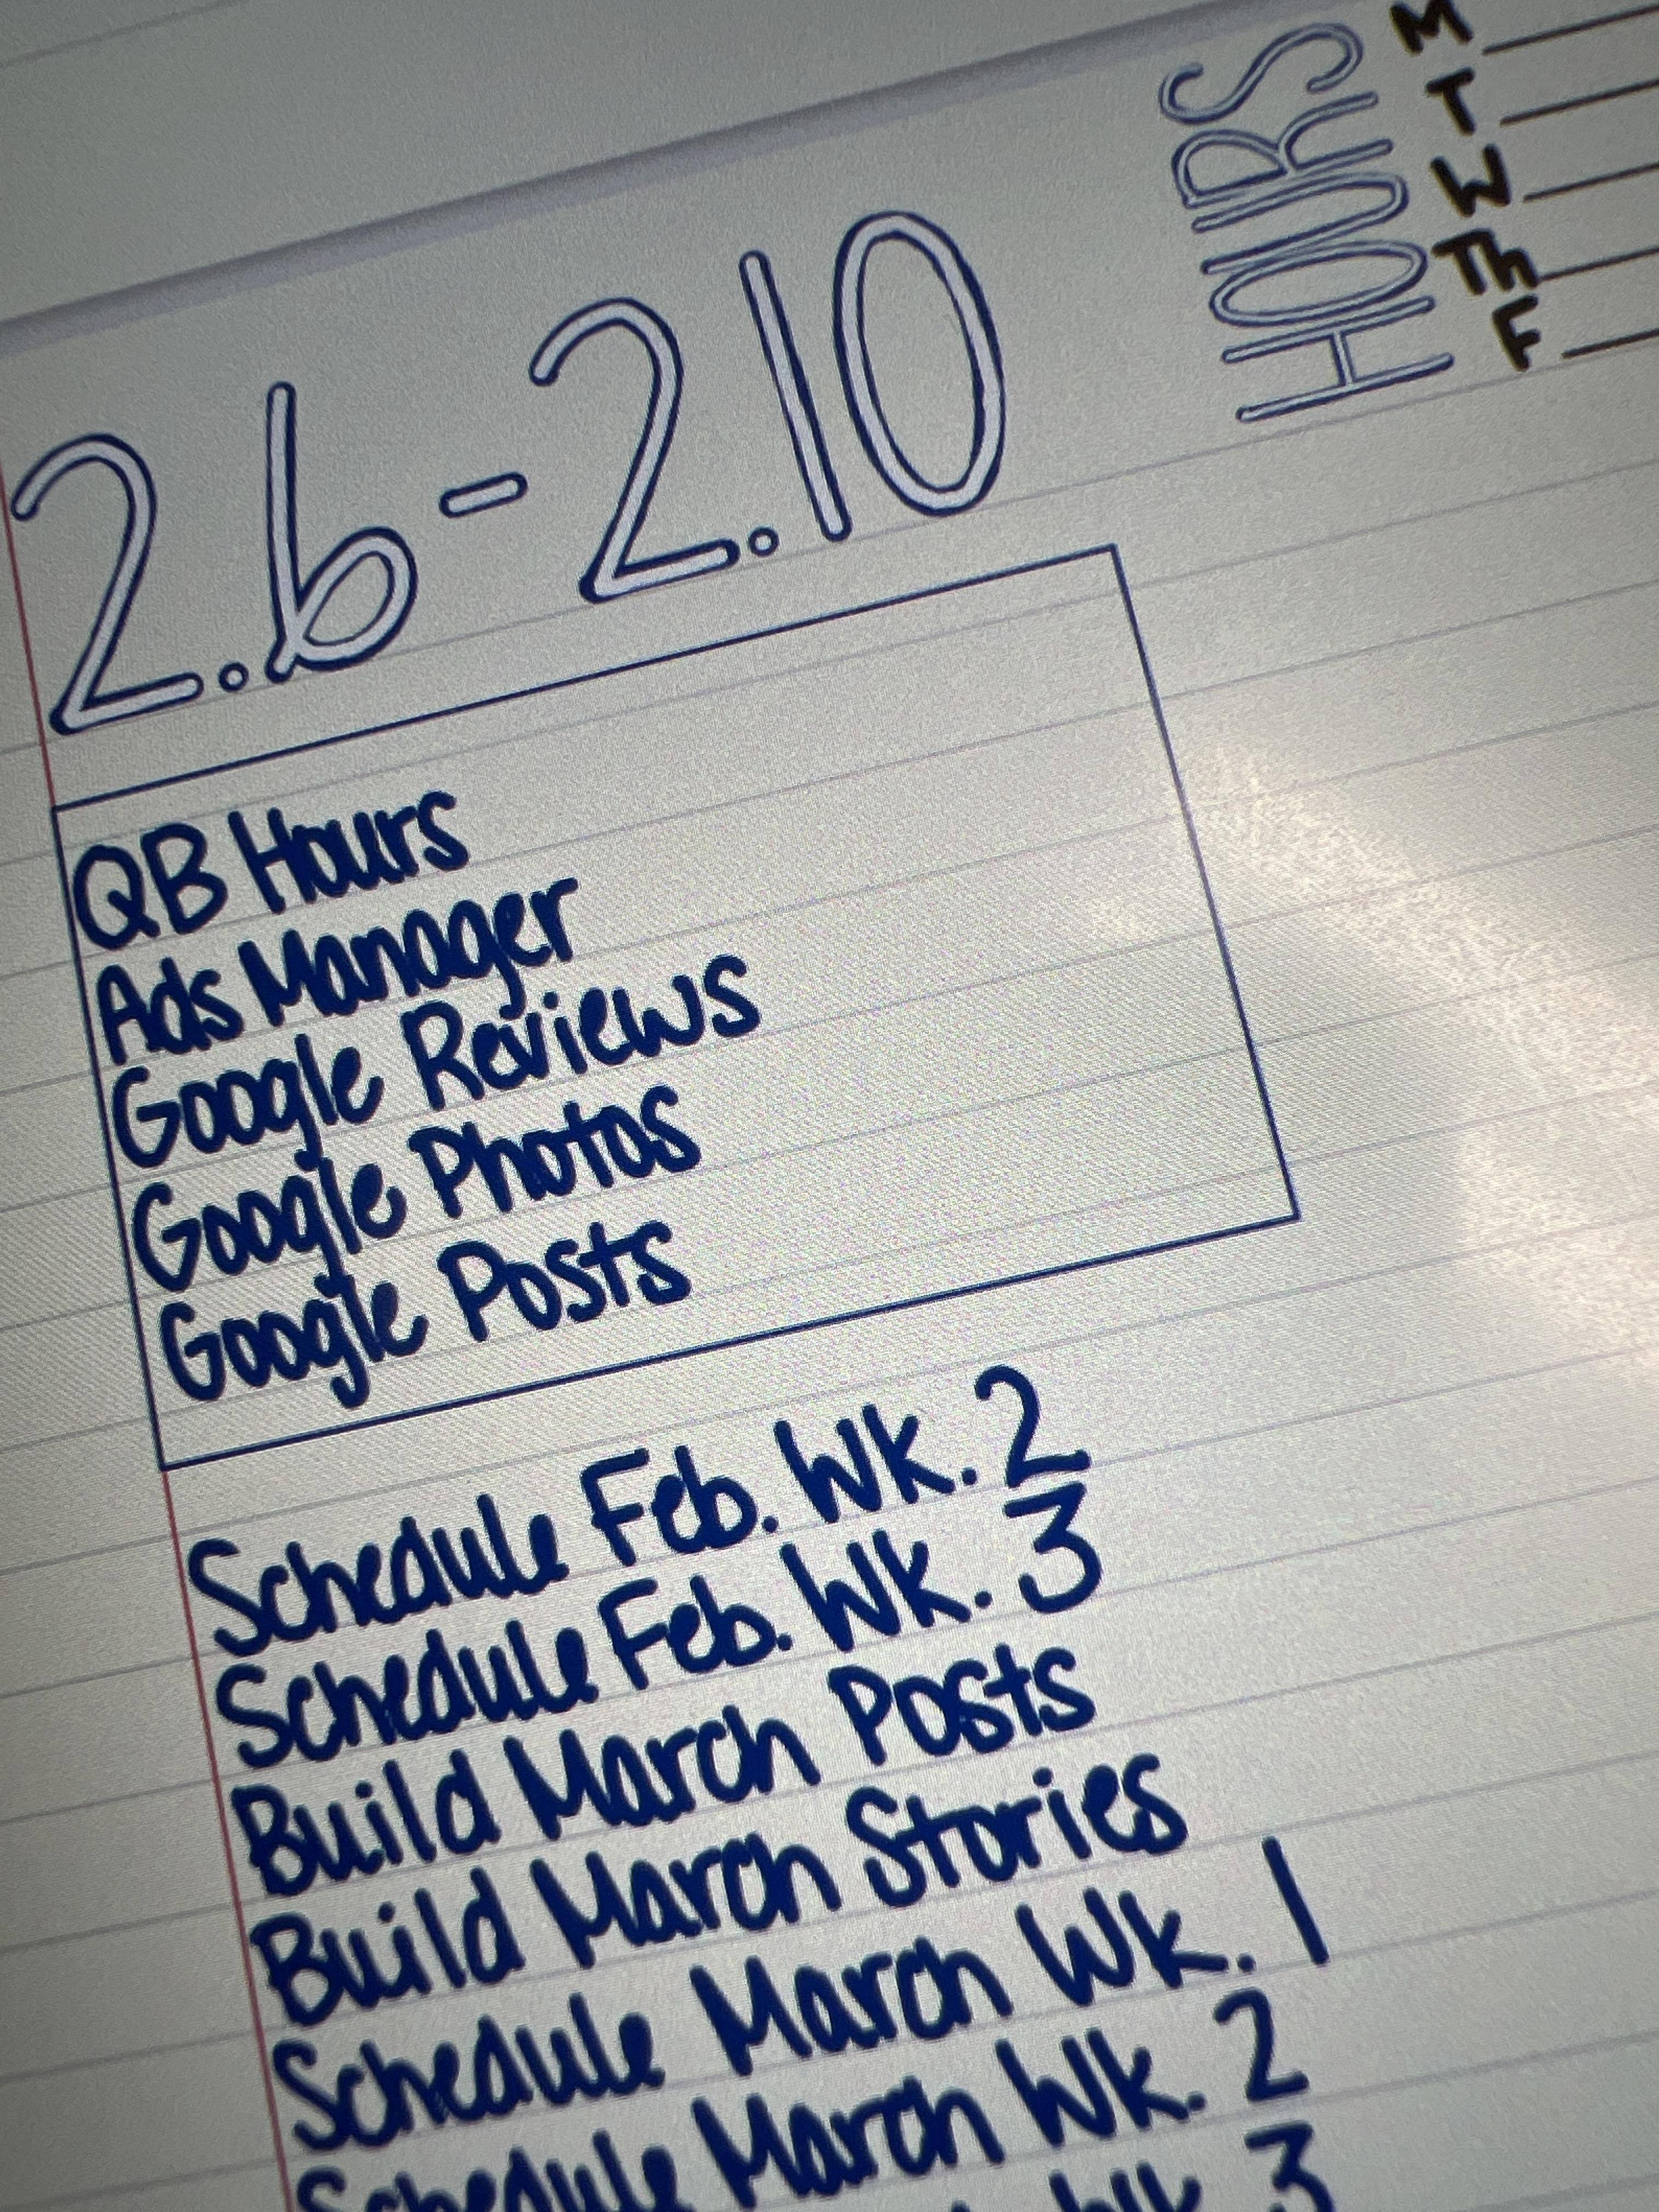 2.6-2.10
HOURS
M
T
W
Th
F
QB Hours
Ads Manager
Google Reviews
Google Photos
Google Posts
Schedule Feb. Wk. 2
Schedule Feb. Wk. 3
Build March Posts
Build March Stories
Schedule March Wk. 1
Schedule March Wk. 2
Wk 3